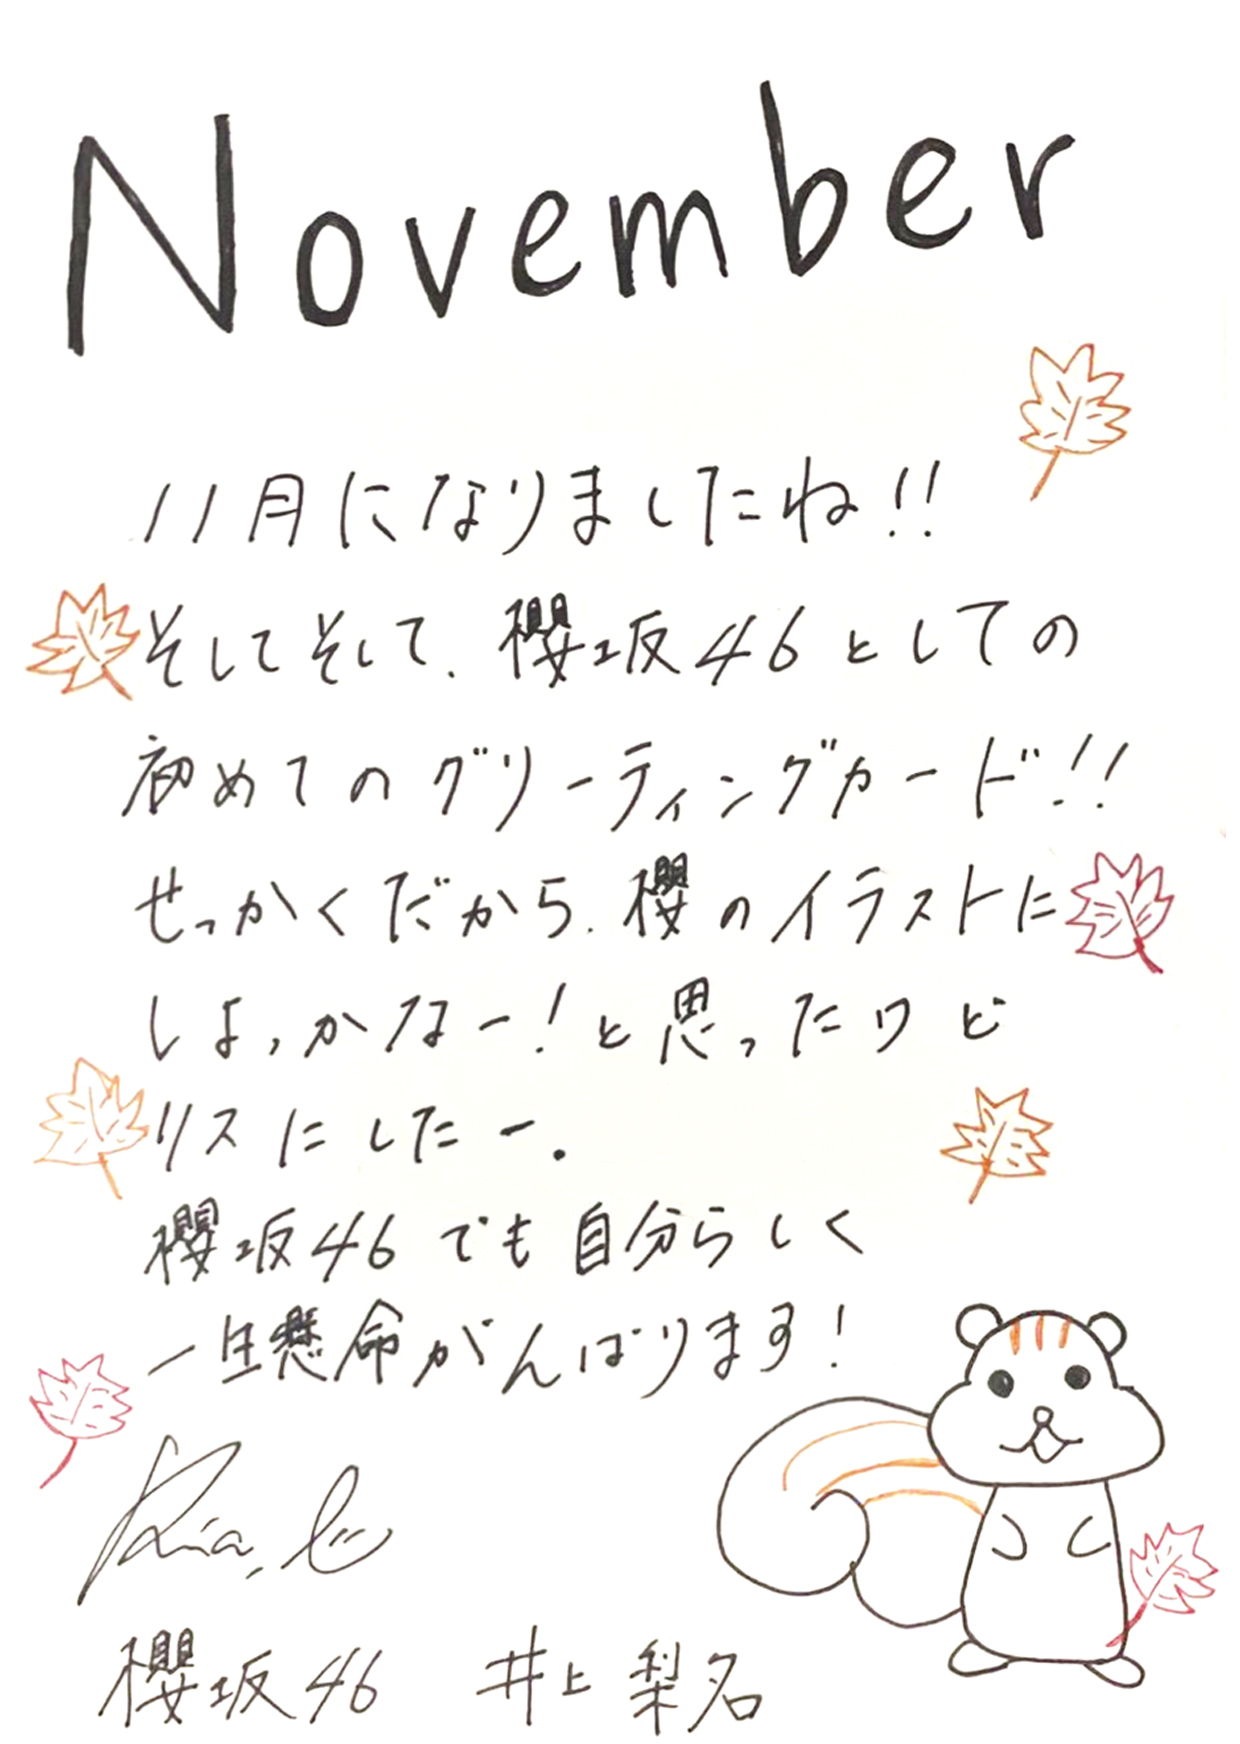 November
11月になりましたね!!
そしてそして、櫻坂46としての
初めてのグリーティングカード!!
せっかくだから、櫻のイラストに
しよっかなー!と思ったけど
リスにしたー.
櫻坂46でも自分らしく
一生懸命がんばります!
Rina.
櫻坂46 井上梨名